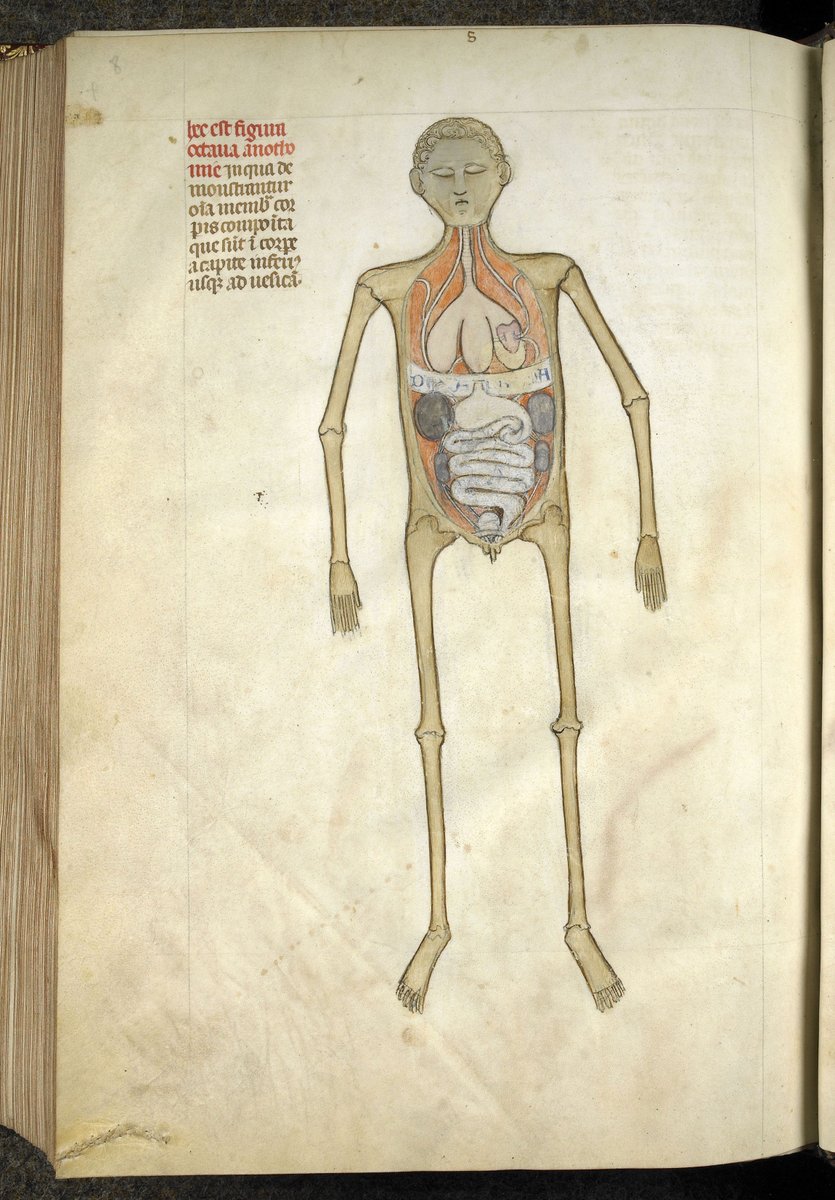 8
8
hec est figura
octaua anotho
mie in qua de
monstrantur
oīa membꝰ cor
pis compoīta
que sūt ī corpe
a capite inferiꝰ
usqꝫ ad uesicā·